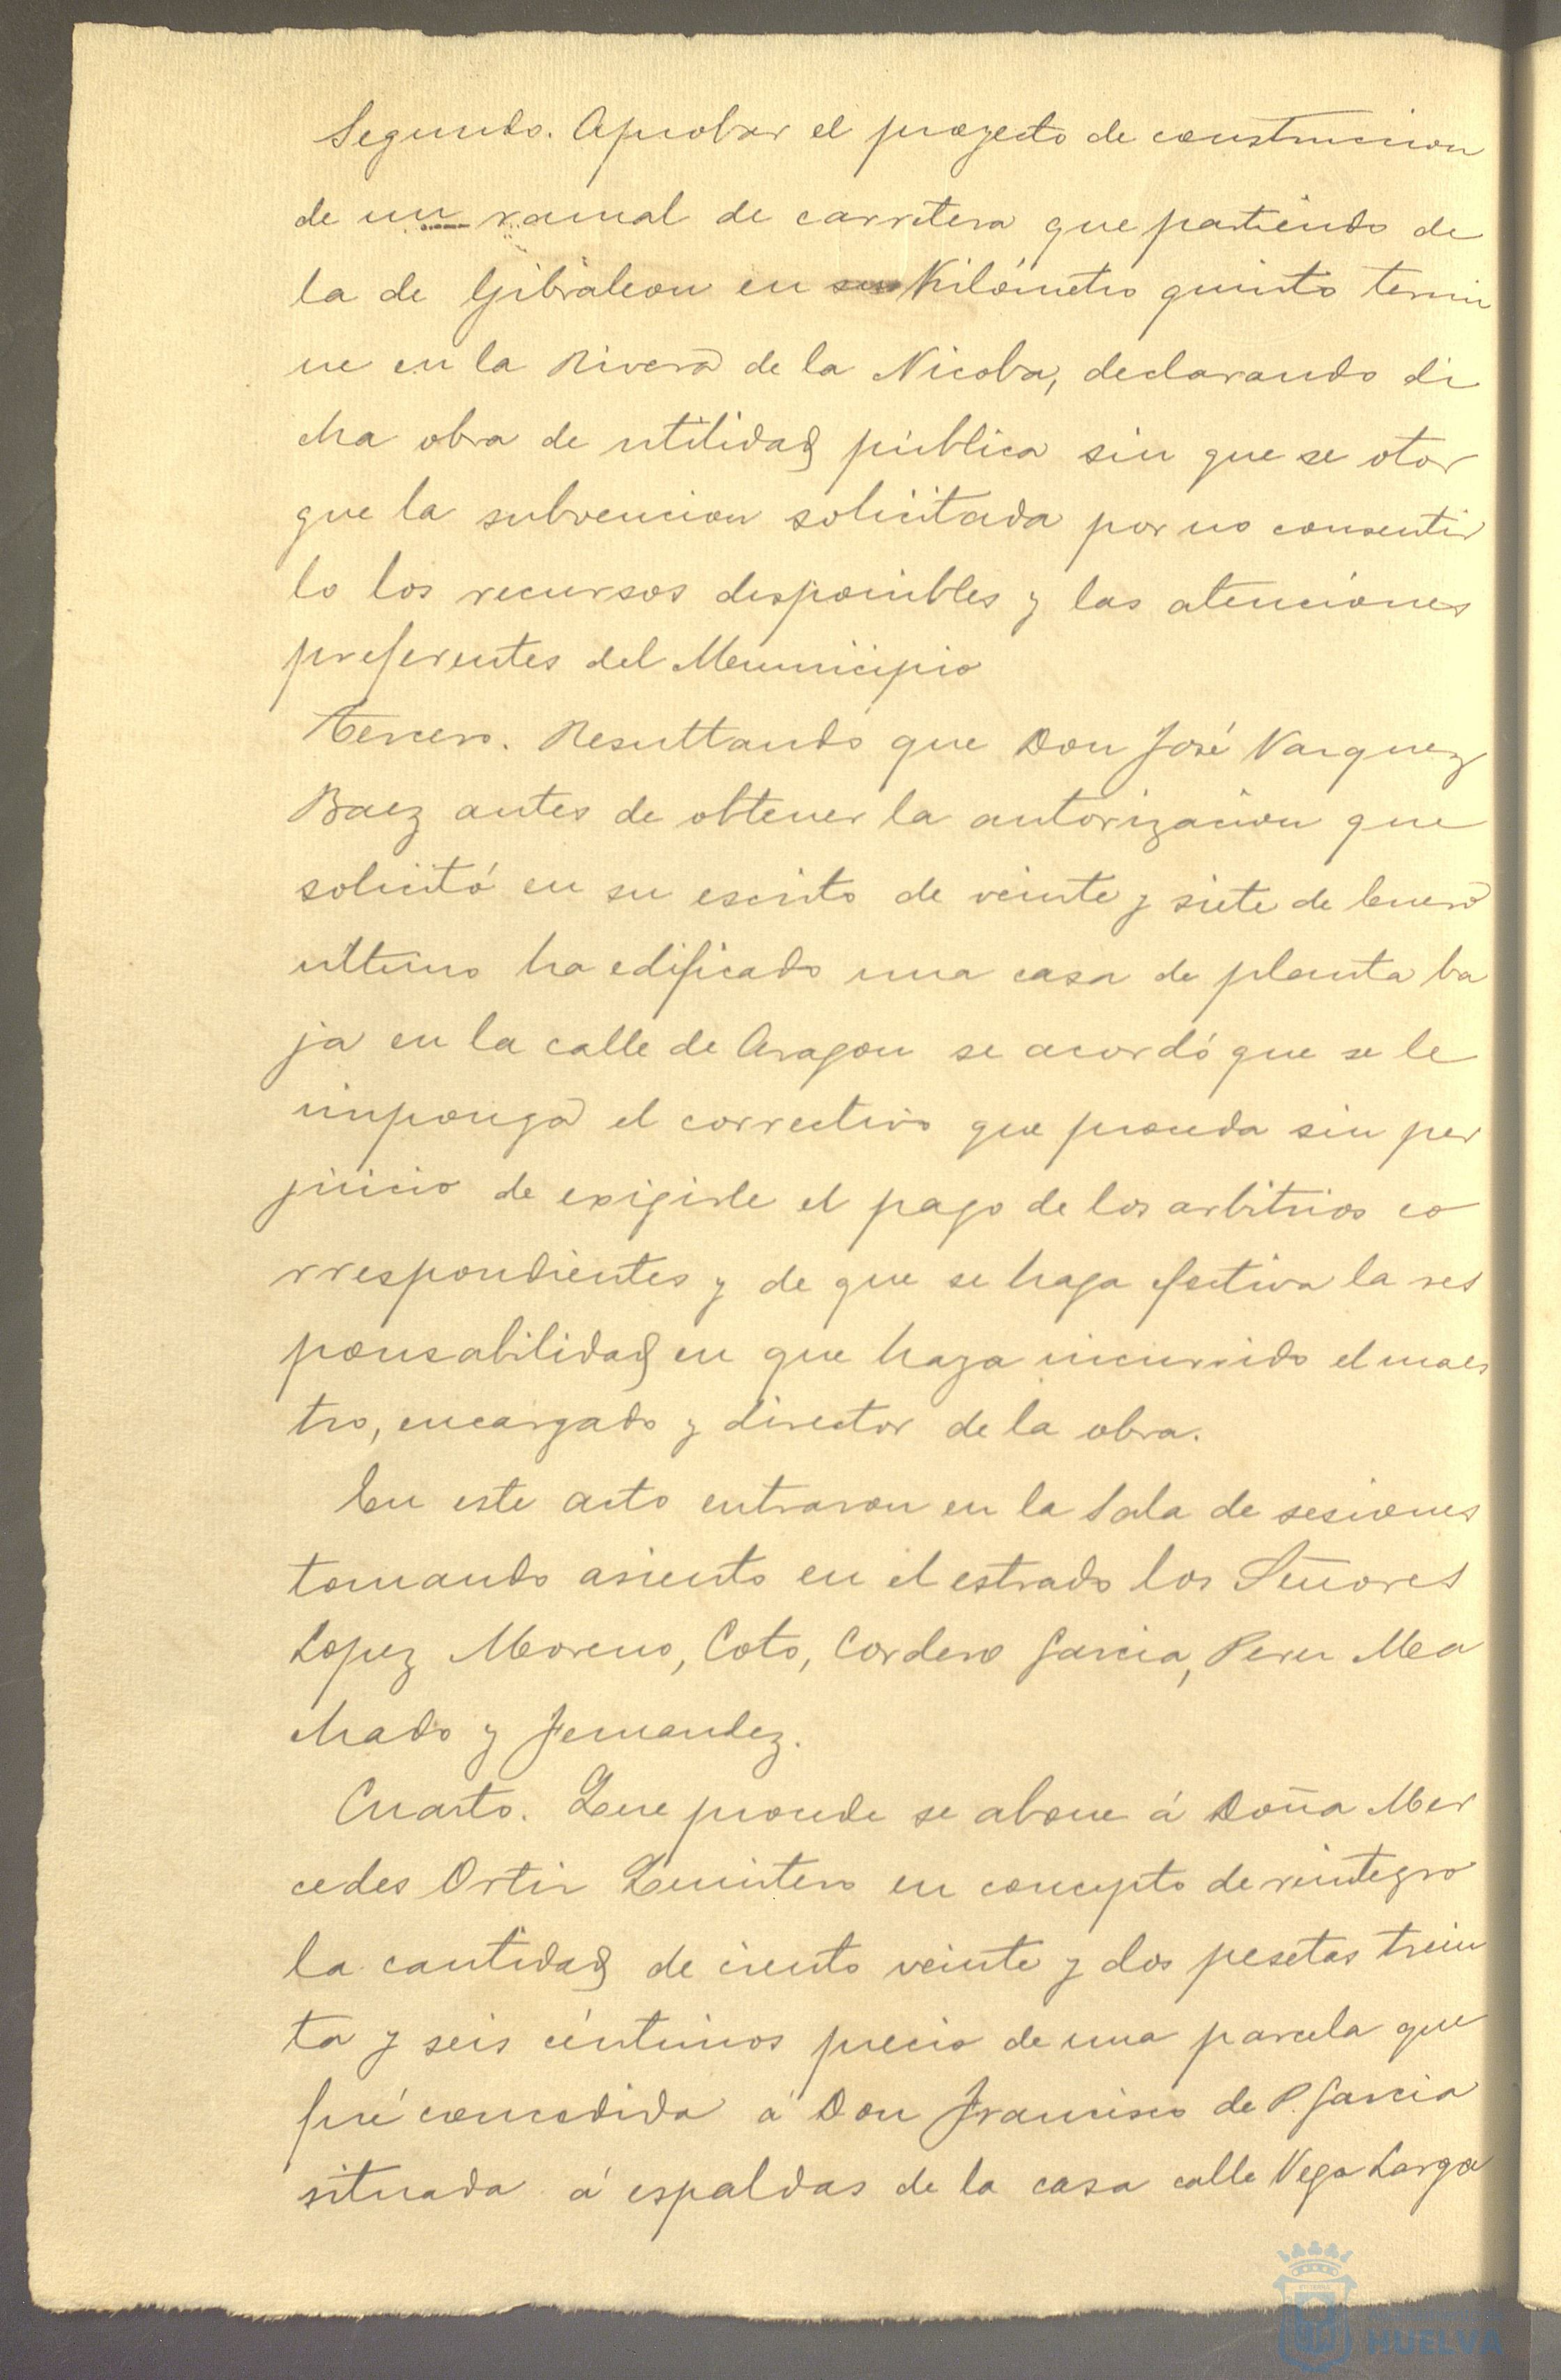 Segundo. Aprobar el proyecto de construccion
de un ramal de carretera que partiendo de
la de Gibraleon en su Kilómetro quinto termi
ne en la Rivera de la Nicoba, declarando di
cha obra de utilidad pública sin que se otor
gue la subvencion solicitada por no consentir
lo los recursos disponibles y las atenciones
preferentes del Municipio
Tercero. Resultando que Don José Vazquez
Baez antes de obtener la autorizacion que
solicitó en su escrito de veinte y siete de Enero
ultimo ha edificado una casa de planta ba
ja en la calle de Aragon se acordó que se le
imponga el correctivo que proceda sin per
juicio de exigirle el pago de los arbitrios co
rrespondientes y de que se haga efectiva la res
ponsabilidad en que haya incurrido el maes
tro, encargado y director de la obra.
En este acto entraron en la Sala de sesiones
tomando asiento en el estrado los Señores
Lopez Moreno, Coto, Cordero Garcia, Perez Ma
chado y Fernandez.
Cuarto. Que procede se abone á Doña Mer
cedes Ortiz Quintero en concepto de reintegro
la cantidad de ciento veinte y dos pesetas trein
ta y seis céntimos precio de una parcela que
fué concedida á Don Francisco de P. Garcia
situada á espaldas de la casa calle Vega Larga
HUELVA